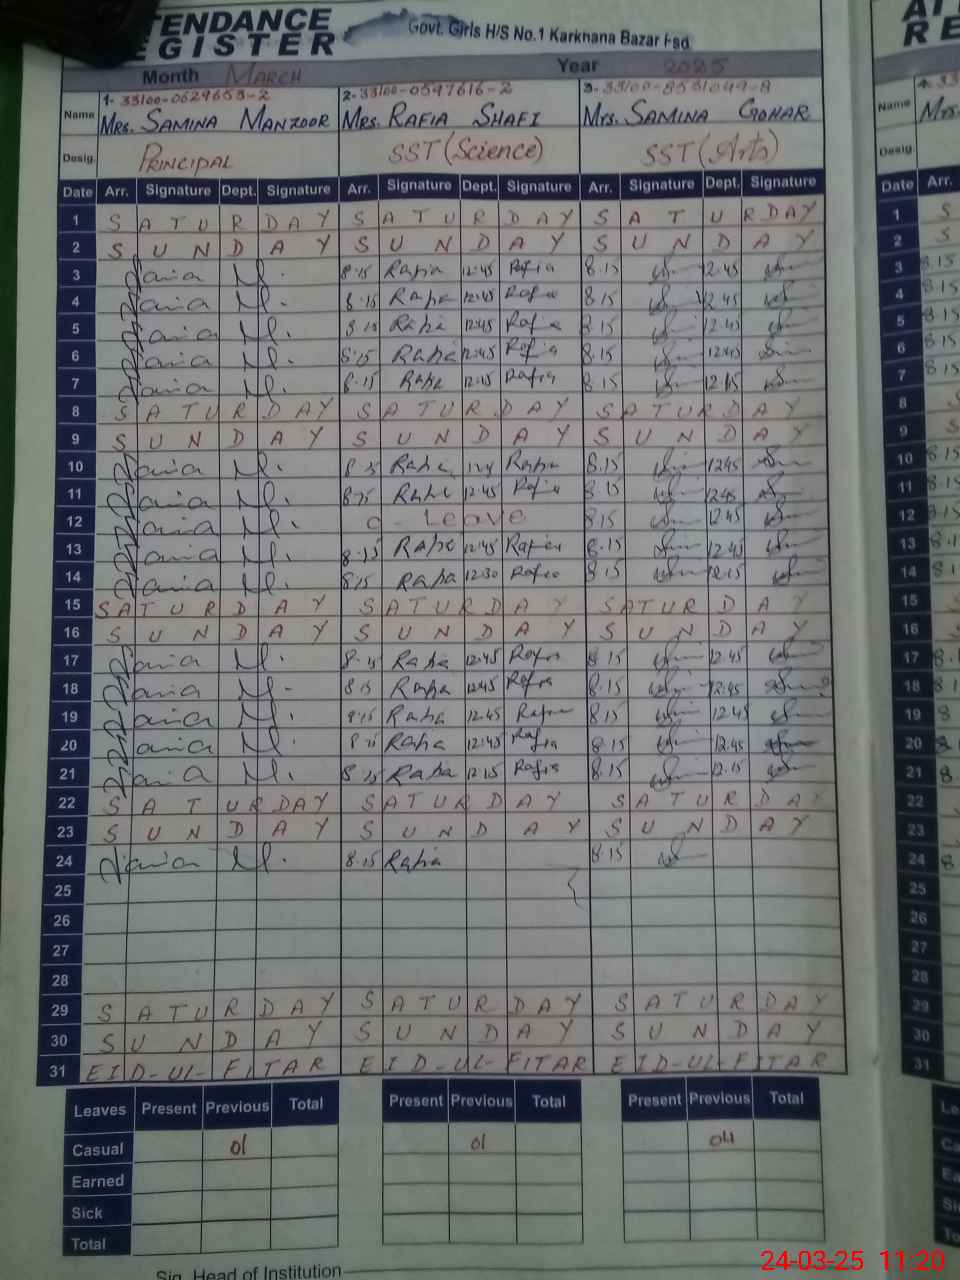 ATTENDANCE
REGISTER
Govt. Girls H/S No.1 Karkhana Bazar Fsd
Month MARCH Year 2025
1- 33100-0629653-2 2-33100-0597616-2 3-33100-8551049-8
Name Mrs. SAMINA MANZOOR Mrs. RAFIA SHAFI Mrs. SAMINA GOHAR
Desig. PRINCIPAL SST (Science) SST (Arts)
Date Arr. Signature Dept. Signature Arr. Signature Dept. Signature Arr. Signature Dept. Signature
1 SATURDAY SATURDAY SATURDAY
2 SUNDAY SUNDAY SUNDAY
3 8.15 Rafia 12:45 Rafia 8.15 12.45
4 8.15 Rafia 12:45 Rafia 8.15 12.45
5 8.15 Rafia 12:45 Rafia 8.15 12.45
6 8.15 Rafia 12:45 Rafia 8.15 12:45
7 8.15 Rafia 12.15 Rafia 8.15 12.15
8 SATURDAY SATURDAY SATURDAY
9 SUNDAY SUNDAY SUNDAY
10 8.15 Rafia Rafia 8.15 12.45
11 8.15 Rafia 12.45 Rafia 8.15 12.45
12 C - Leave 8.15 12.45
13 8.15 Rafia 12.45 Rafia 8.15 12.45
14 8.15 Rafia 12:30 Rafia 8.15 12.15
15 SATURDAY SATURDAY SATURDAY
16 SUNDAY SUNDAY SUNDAY
17 8.15 Rafia 12.45 Rafia 8.15 12.45
18 8.15 Rafia 12.45 Rafia 8.15 12.45
19 8.15 Rafia 12.45 Rafia 8.15 12.45
20 8.15 Rafia 12:45 Rafia 8.15 12.45
21 8.15 Rafia 12.15 Rafia 8.15 12.15
22 SATURDAY SATURDAY SATURDAY
23 SUNDAY SUNDAY SUNDAY
24 8.15 Rafia 8.15
25
26
27
28
29 SATURDAY SATURDAY SATURDAY
30 SUNDAY SUNDAY SUNDAY
31 EID-UL-FITAR EID-UL-FITAR EID-UL-FITAR
Leaves Present Previous Total Present Previous Total Present Previous Total
Casual 01 01 04
Earned
Sick
Total
Sig. Head of Institution
24-03-25 11:20